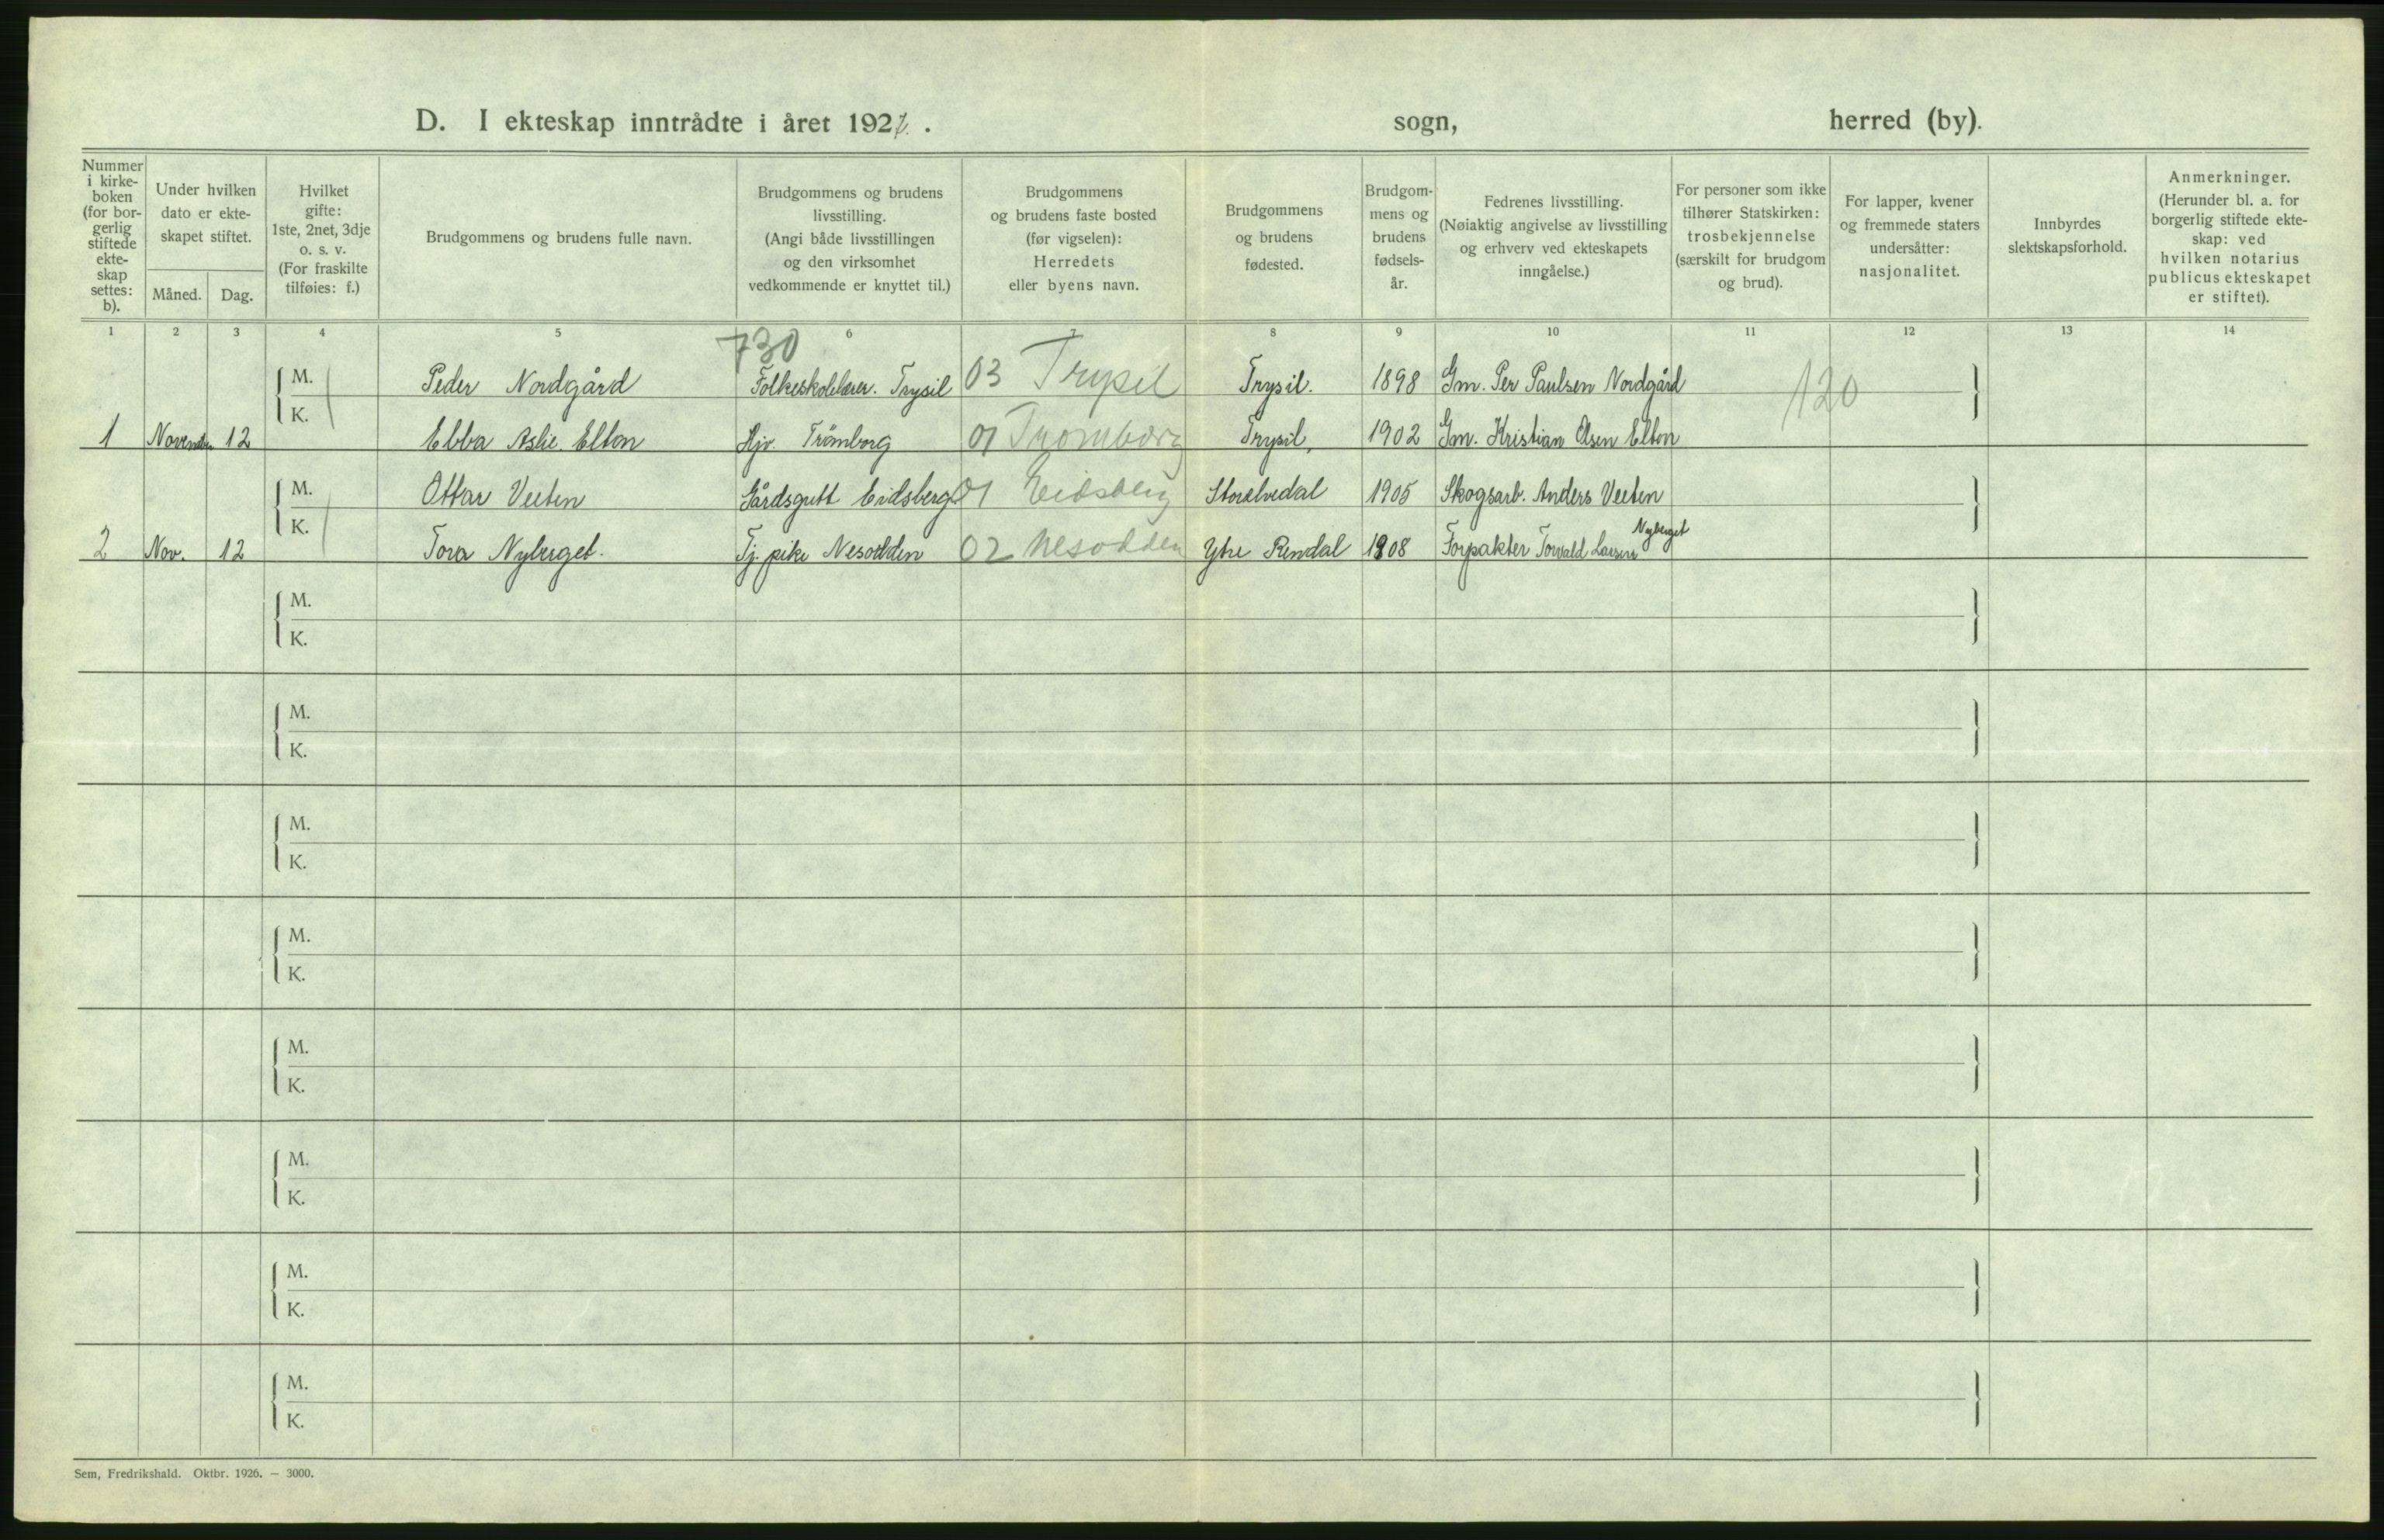 D. I ekteskap inntrådte i året 1927. . sogn, herred (by).
Nummer
i kirke-
boken
(for bor-
gerlig
stiftede
ekte-
skap
settes:
b).
Under hvilken
dato er ekte-
skapet stiftet.
Måned. Dag.
Hvilket
gifte:
1ste, 2net, 3dje
o. s. v.
(For fraskilte
tilføies: f.)
Brudgommens og brudens fulle navn.
Brudgommens og brudens
livsstilling.
(Angi både livsstillingen
og den virksomhet
vedkommende er knyttet til.)
Brudgommens
og brudens faste bosted
(før vigselen):
Herredets
eller byens navn.
Brudgommens
og brudens
fødested.
Brudgom-
mens og
brudens
fødsels-
år.
Fedrenes livsstilling.
(Nøiaktig angivelse av livsstilling
og erhverv ved ekteskapets
inngåelse.)
For personer som ikke
tilhører Statskirken:
trosbekjennelse
(særskilt for brudgom
og brud).
For lapper, kvener
og fremmede staters
undersåtter:
nasjonalitet.
Innbyrdes
slektskapsforhold.
Anmerkninger.
(Herunder bl. a. for
borgerlig stiftede ekte-
skap: ved
hvilken notarius
publicus ekteskapet
er stiftet).
1 2 3 4 5 6 7 8 9 10 11 12 13 14
730
M. Peder Nordgård Folkeskolelærer. Trysil 03 Trysil Trysil. 1898 Gm. Per Paulsen Nordgård 120
K.
1 November 12 Ebba Aslie. Elton Hjv. Trömborg 01 Tromborg Trysil, 1902 Gm. Kristian Olsen Elton
M. Ottar Veeten Gårdsgutt Eidsberg 01 Eidsberg Storelvedal 1905 Skogsarb. Anders Veeten
K.
Nyberget
2 Nov. 12 Tora Nyberget. Tj. pike Nesodden 02 Nesodden Ytre Rendal 1908 Forpakter Torvald Larsen
M.
K.
M.
K.
M.
K.
M.
K.
M.
K.
M.
K.
M.
K.
M.
K.
Sem, Fredrikshald. Oktbr. 1926. — 3000.